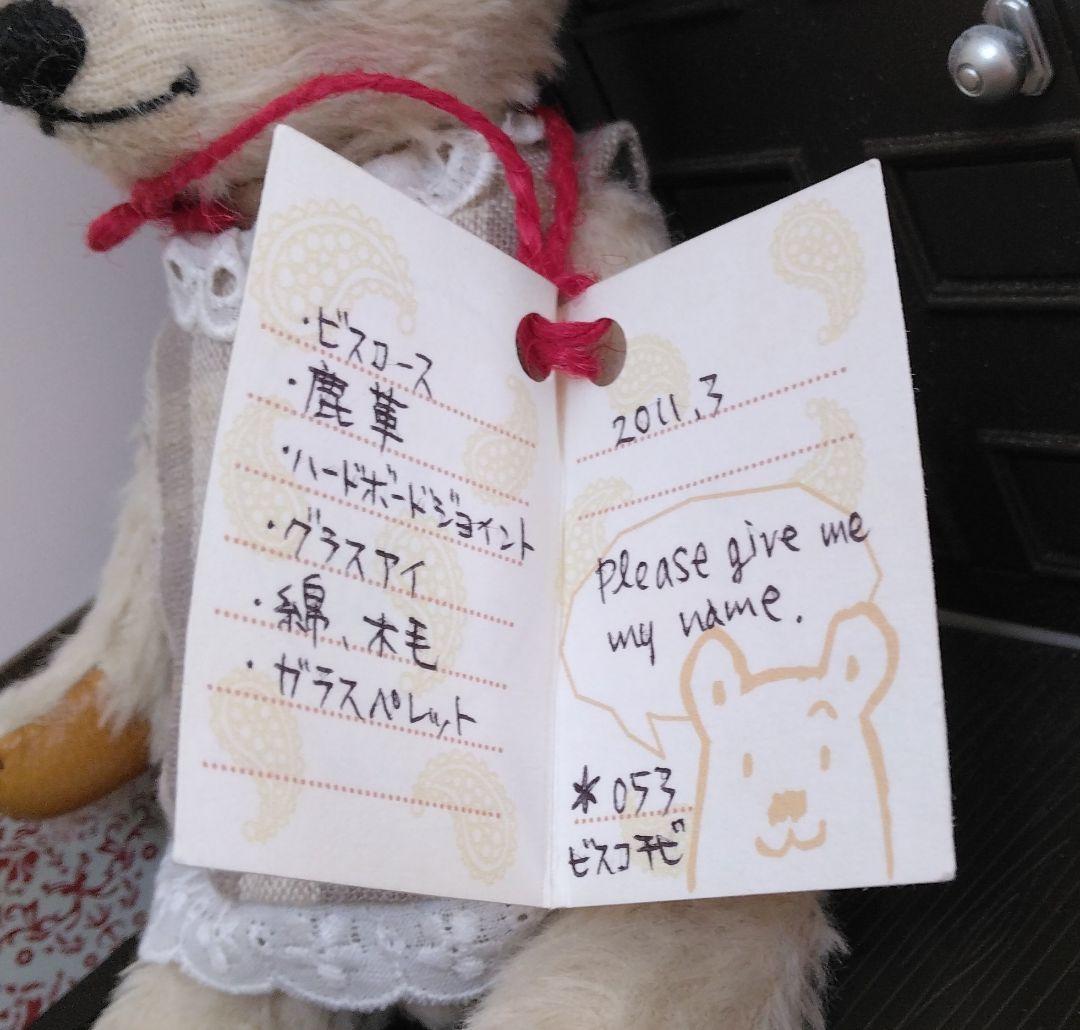 ・ビスコース
・鹿革
・ハードボードジョイント
・グラスアイ
・綿、木毛
・ガラスペレット
2011.3
please give me
my name.
*053
ビスコチビ